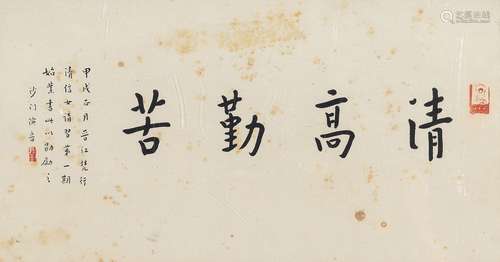 清高勤苦
甲戌正月晋江梵行
清信女講習第一期
始業書此以勖励之
沙門演音